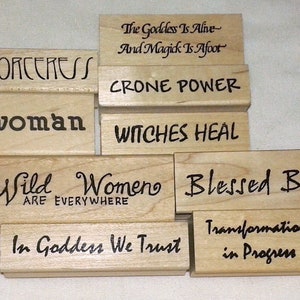 The Goddess Is Alive
And Magick Is Afoot
ORCERESS
CRONE POWER
woman
WITCHES HEAL
Wild Women
ARE EVERYWHERE
Blessed B
In Goddess We Trust
Transformation
in Progress